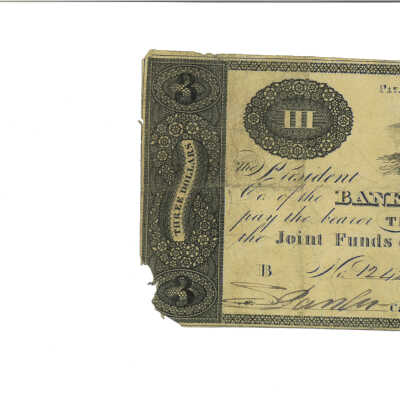 3
PAY
III
THREE DOLLARS
The President
Co. of the BANK
pay the bearer T
the Joint Funds
B No. 124
3